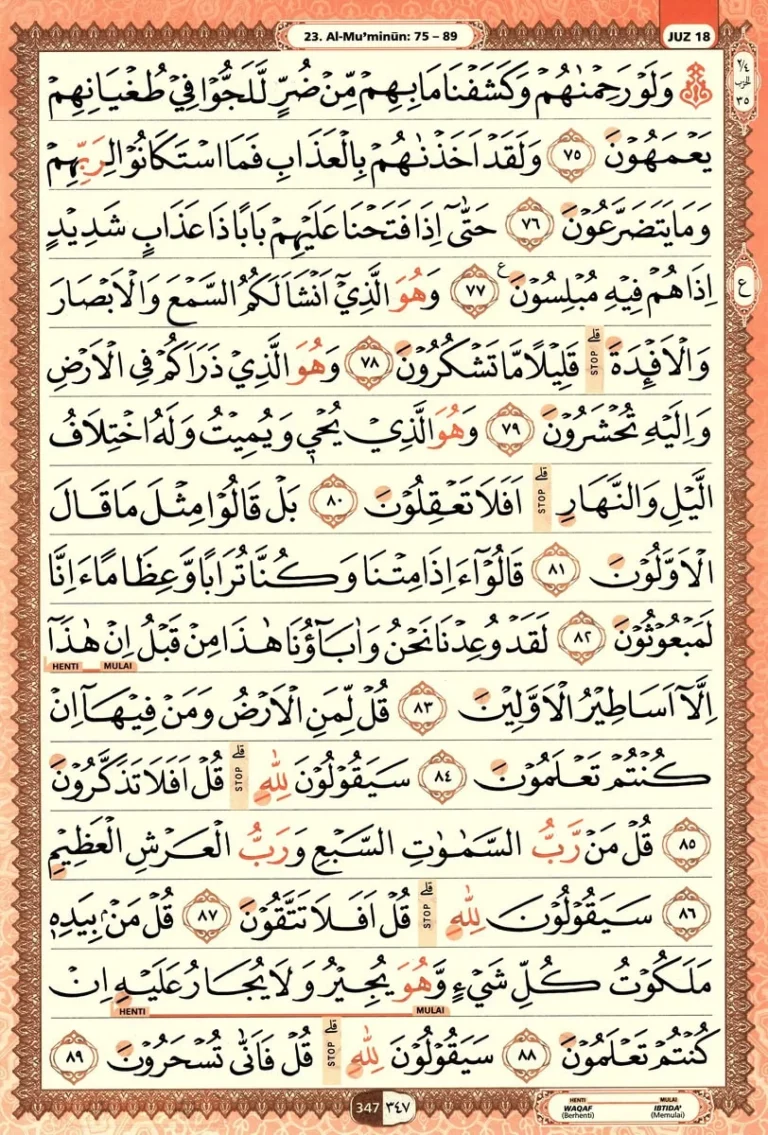 23. Al-Mu’minūn: 75 – 89
JUZ 18
٢/٤
الحزب
٣٥
وَلَوْ رَحِمْنٰهُمْ وَكَشَفْنَا مَا بِهِمْ مِّنْ ضُرٍّ لَّلَجُّوْا فِيْ طُغْيَانِهِمْ
يَعْمَهُوْنَ ٧٥ وَلَقَدْ اَخَذْنٰهُمْ بِالْعَذَابِ فَمَا اسْتَكَانُوْا لِرَبِّهِمْ
وَمَا يَتَضَرَّعُوْنَ ٧٦ حَتّٰىٓ اِذَا فَتَحْنَا عَلَيْهِمْ بَابًا ذَا عَذَابٍ شَدِيْدٍ
اِذَا هُمْ فِيْهِ مُبْلِسُوْنَ ع ٧٧ وَهُوَ الَّذِيْٓ اَنْشَاَ لَكُمُ السَّمْعَ وَالْاَبْصَارَ
ع
وَالْاَفْـِٕدَةَ قلى STOP قَلِيْلًا مَّا تَشْكُرُوْنَ ٧٨ وَهُوَ الَّذِيْ ذَرَاَكُمْ فِى الْاَرْضِ
وَاِلَيْهِ تُحْشَرُوْنَ ٧٩ وَهُوَ الَّذِيْ يُحْيٖ وَيُمِيْتُ وَلَهُ اخْتِلَافُ
الَّيْلِ وَالنَّهَارِ قلى STOP اَفَلَا تَعْقِلُوْنَ ٨٠ بَلْ قَالُوْا مِثْلَ مَا قَالَ
الْاَوَّلُوْنَ ٨١ قَالُوْٓا ءَاِذَا مِتْنَا وَكُنَّا تُرَابًا وَّعِظَامًا ءَاِنَّا
لَمَبْعُوْثُوْنَ ٨٢ لَقَدْ وُعِدْنَا نَحْنُ وَاٰبَاۤؤُنَا هٰذَا مِنْ قَبْلُ اِنْ هٰذَآ
HENTI MULAI
اِلَّآ اَسَاطِيْرُ الْاَوَّلِيْنَ ٨٣ قُلْ لِّمَنِ الْاَرْضُ وَمَنْ فِيْهَآ اِنْ
كُنْتُمْ تَعْلَمُوْنَ ٨٤ سَيَقُوْلُوْنَ لِلّٰهِ قلى STOP قُلْ اَفَلَا تَذَكَّرُوْنَ
٨٥ قُلْ مَنْ رَّبُّ السَّمٰوٰتِ السَّبْعِ وَرَبُّ الْعَرْشِ الْعَظِيْمِ
٨٦ سَيَقُوْلُوْنَ لِلّٰهِ قلى STOP قُلْ اَفَلَا تَتَّقُوْنَ ٨٧ قُلْ مَنْۢ بِيَدِهٖ
مَلَكُوْتُ كُلِّ شَيْءٍ وَّهُوَ يُجِيْرُ وَلَا يُجَارُ عَلَيْهِ اِنْ
HENTI MULAI
كُنْتُمْ تَعْلَمُوْنَ ٨٨ سَيَقُوْلُوْنَ لِلّٰهِ قلى STOP قُلْ فَاَنّٰى تُسْحَرُوْنَ ٨٩
347 ٣٤٧
HENTI MULAI
WAQAF IBTIDA'
(Berhenti) (Memulai)